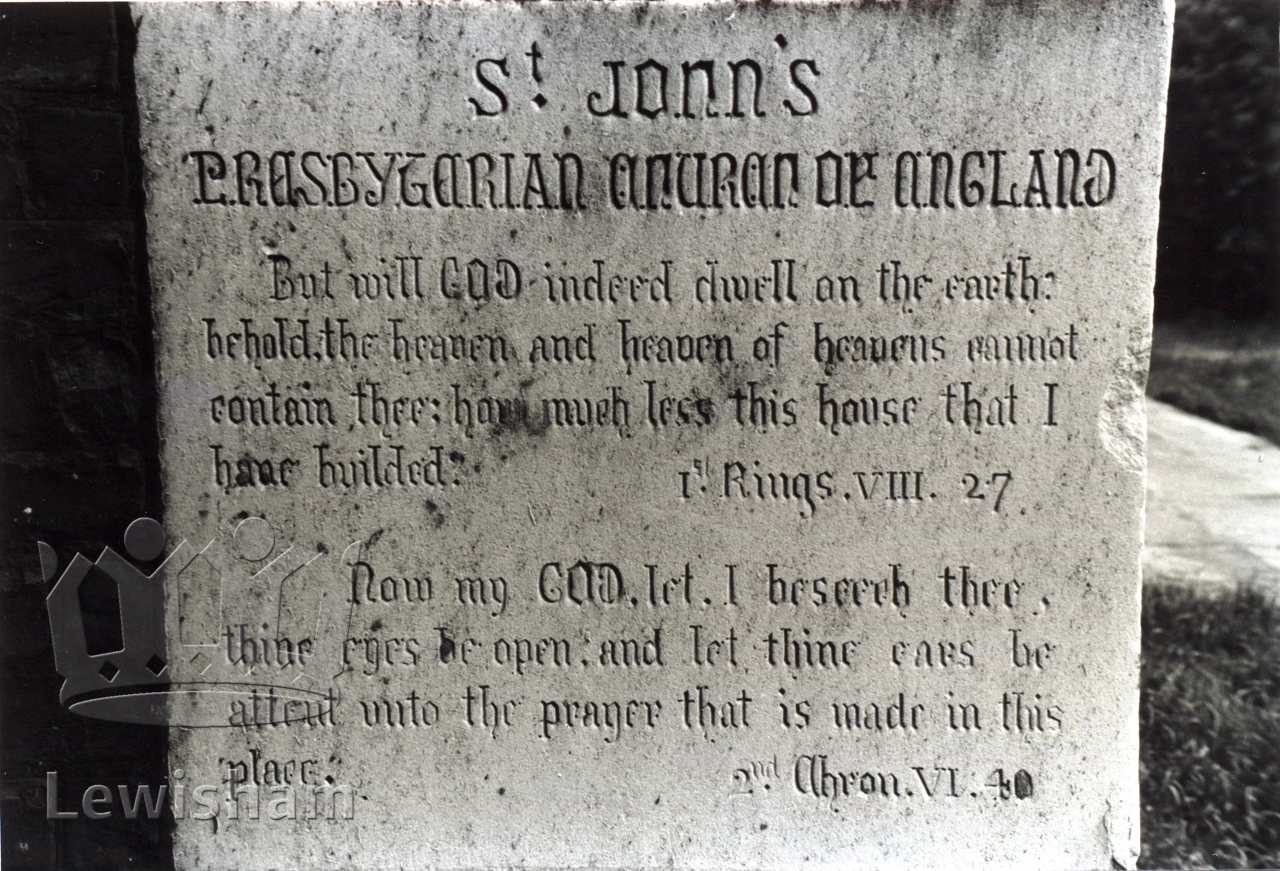 St. JOHN'S
PRESBYTERIAN CHURCH OF ENGLAND
But will GOD indeed dwell on the earth?
behold, the heaven and heaven of heavens cannot
contain thee; how much less this house that I
have builded?
1st. Kings. VIII. 27
Now my GOD, let, I beseech thee,
thine eyes be open, and let thine ears be
attent unto the prayer that is made in this
place.
2nd. Chron. VI. 40
Lewisham